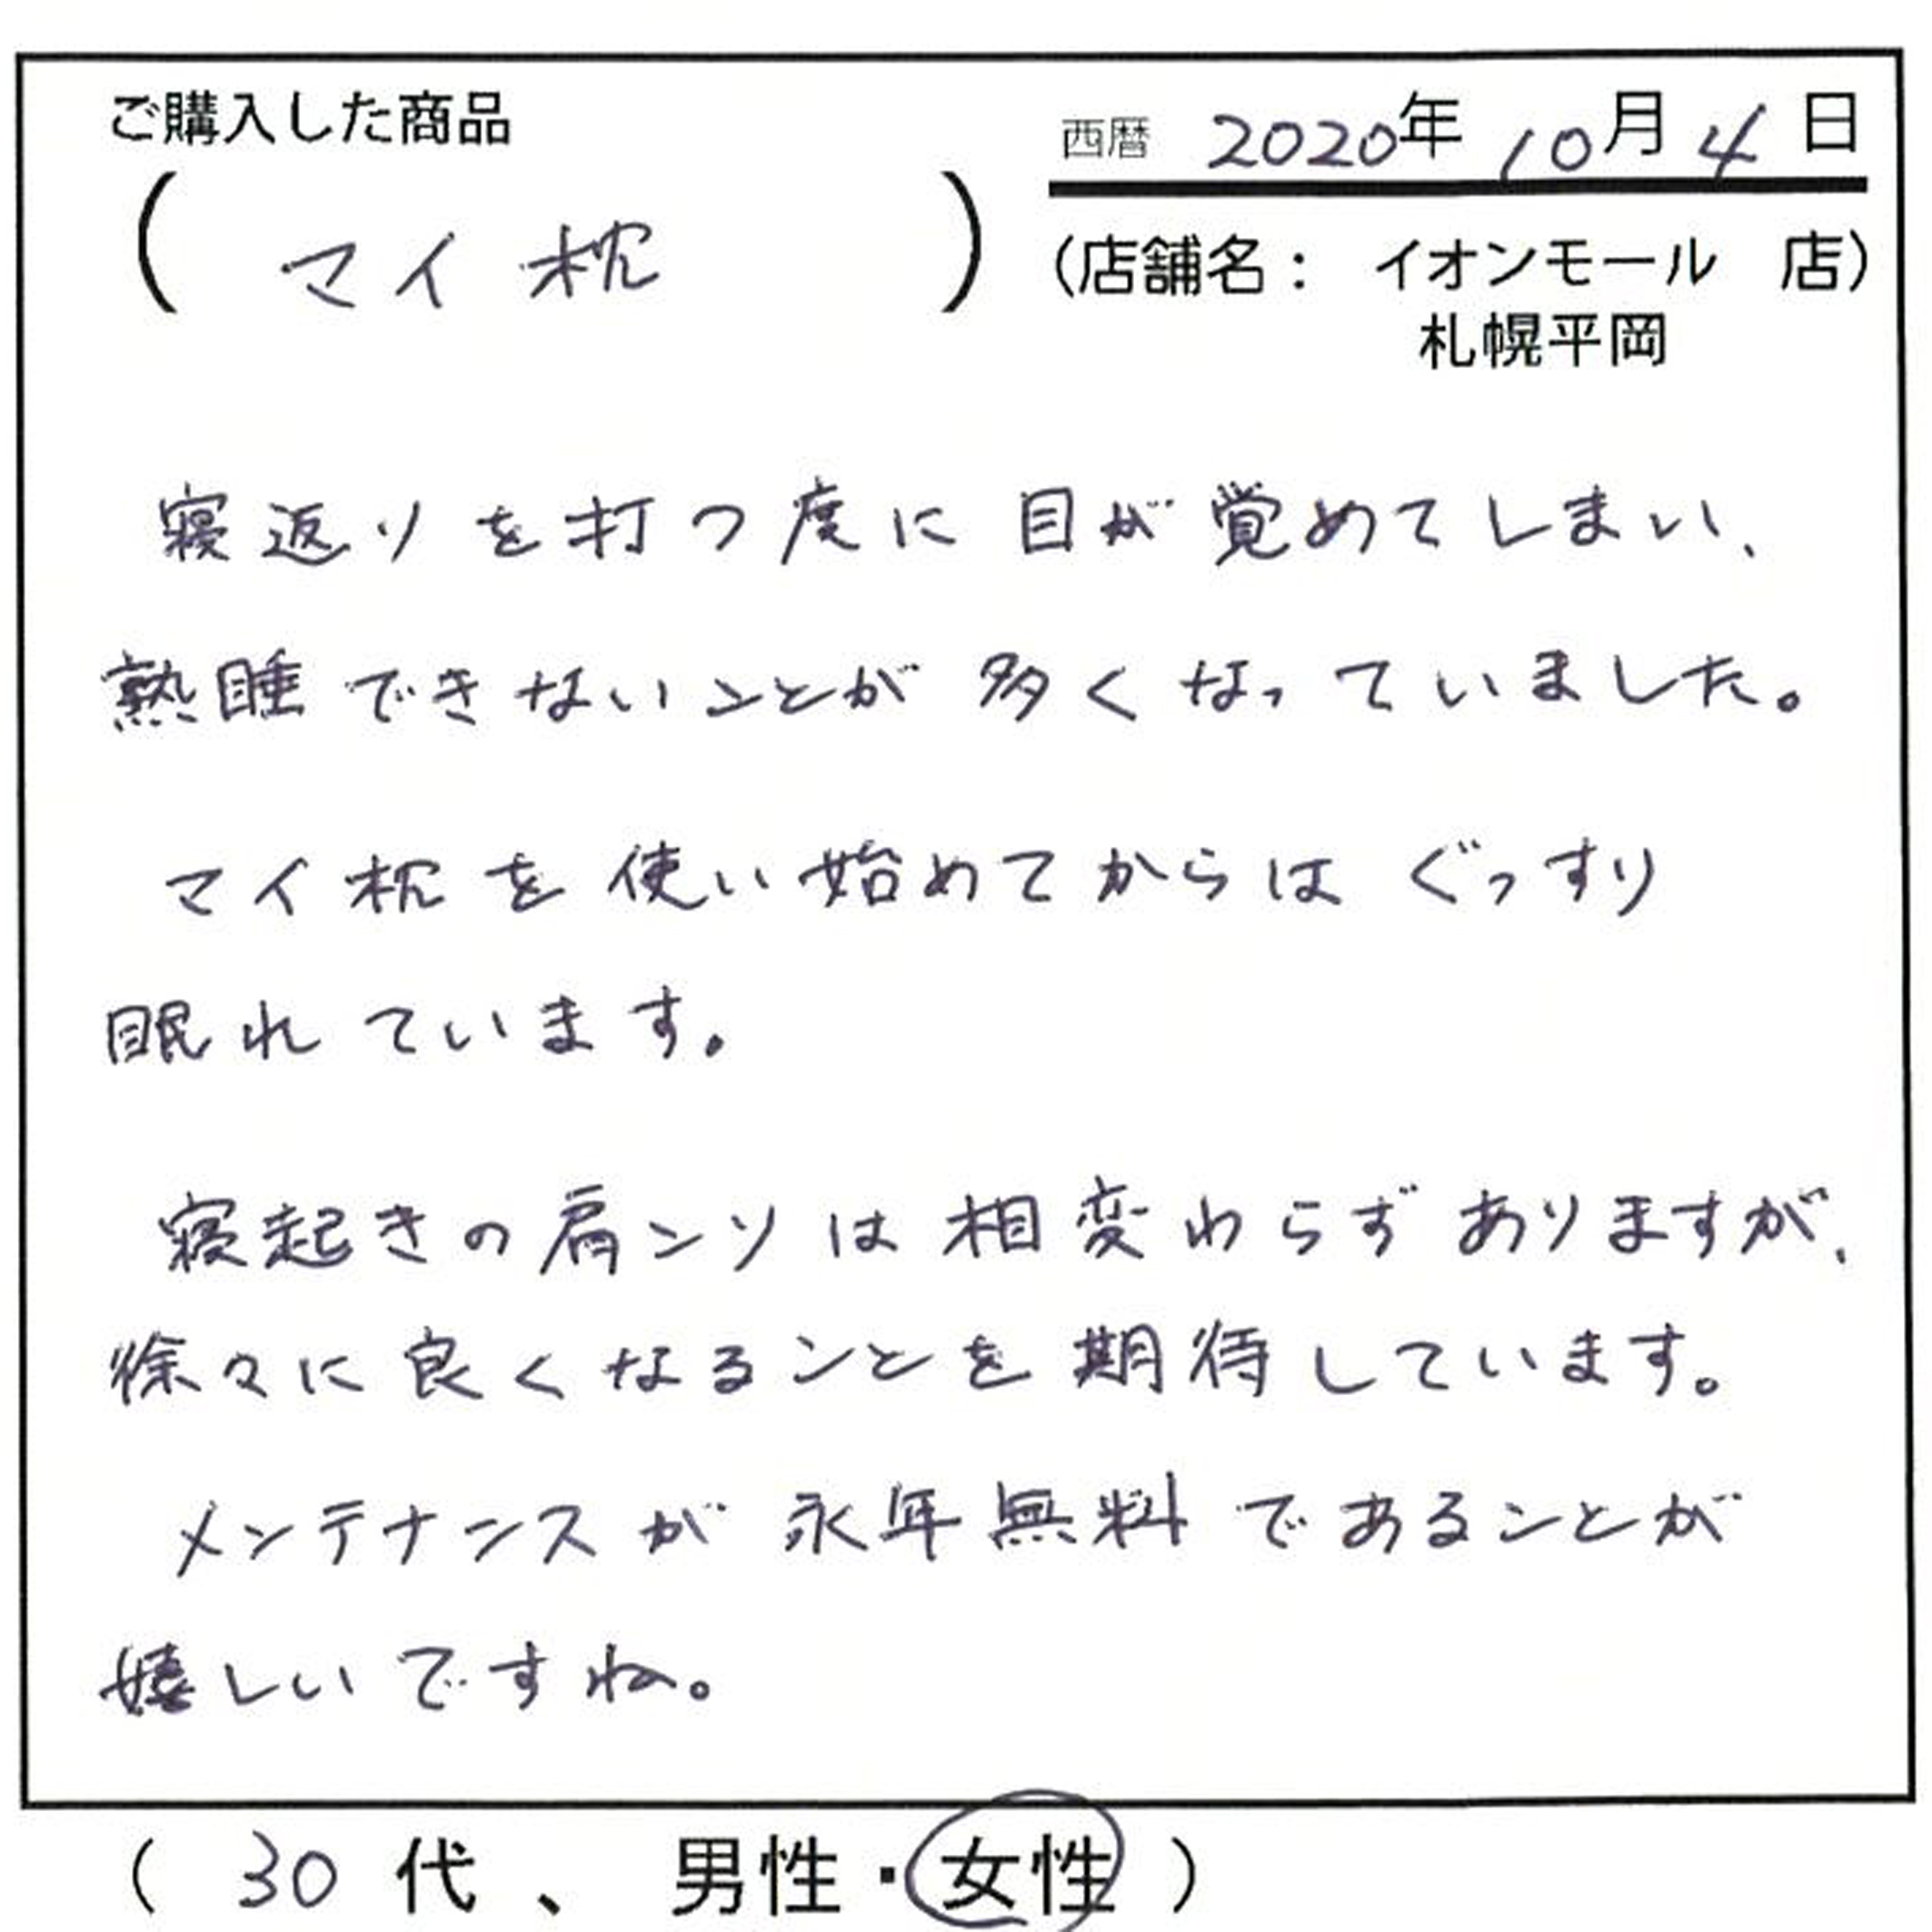 ご購入した商品
西暦 2020年 10月 4日
( マイ枕 )
(店舗名： イオンモール 店)
札幌平岡
寝返りを打つ度に目が覚めてしまい、
熟睡できないことが多くなっていました。
マイ枕を使い始めてからはぐっすり
眠れています。
寝起きの肩コリは相変わらずありますが、
徐々に良くなることを期待しています。
メンテナンスが永年無料であることが
嬉しいですね。
( 30代、 男性・女性 )